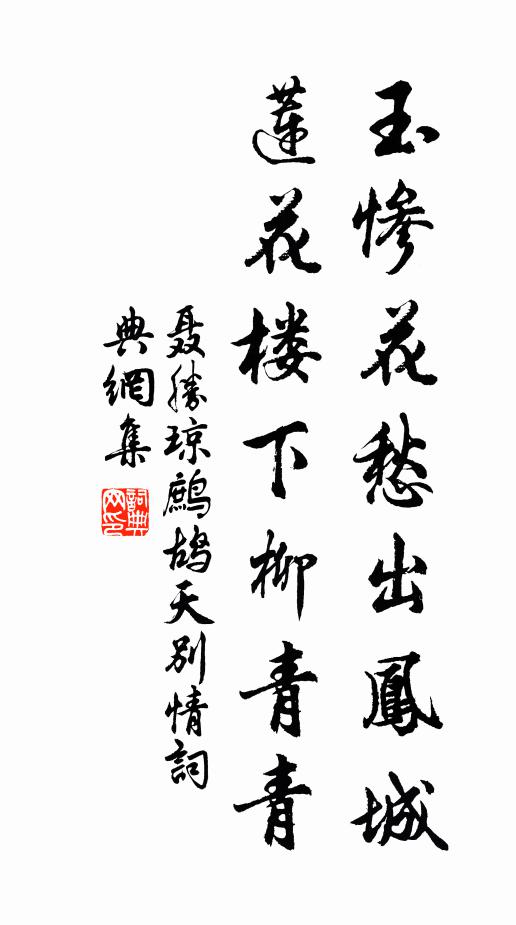 玉慘花愁出鳳城
蓮花楼下柳青青
聂勝琼鷓鴣天别情詞
典網集
詞典網印